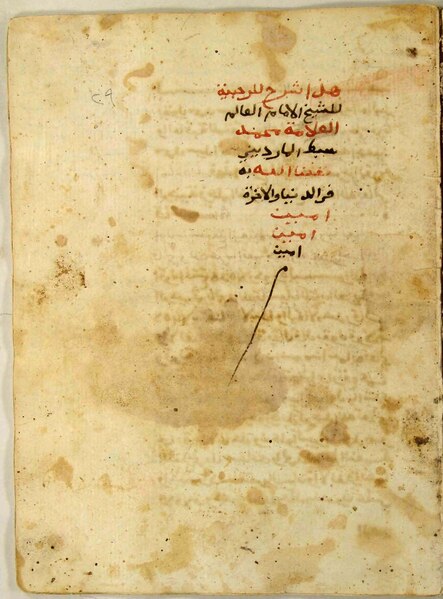 هذا شرح للرحبية
للشيخ الامام العالم
العلامة محمد
سبط المارديني
نفعنا الله به
في الدنيا والاخرة
امين
امين
امين